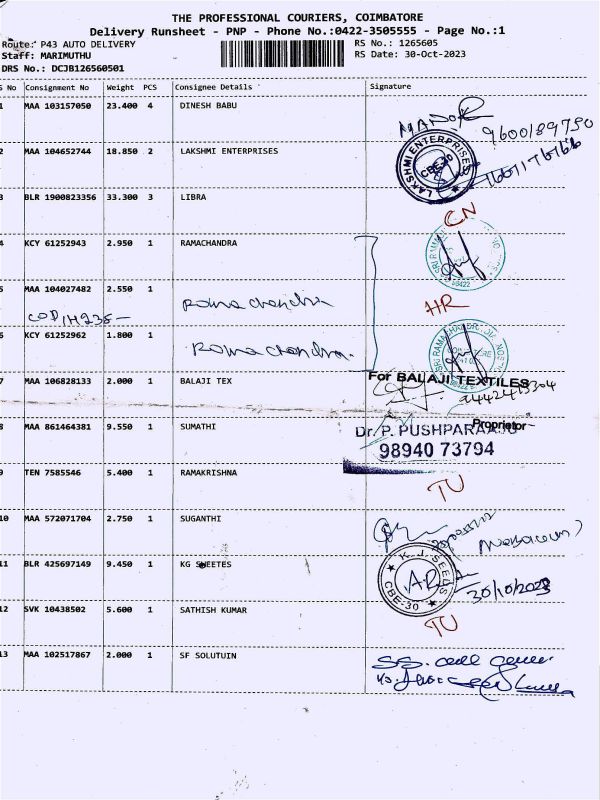 THE PROFESSIONAL COURIERS, COIMBATORE
Delivery Runsheet - PNP - Phone No.:0422-3505555 - Page No.:1
Route: P43 AUTO DELIVERY RS No.: 1265605
Staff: MARIMUTHU RS Date: 30-Oct-2023
DRS No.: DCJB126560501
S No Consignment No Weight PCS Consignee Details Signature
1 MAA 103157050 23.400 4 DINESH BABU
9600189790
2 MAA 104652744 18.850 2 LAKSHMI ENTERPRISES
LAKSHMI ENTERPRISES CBE-
3 BLR 1900823356 33.300 3 LIBRA
CN
4 KCY 61252943 2.950 1 RAMACHANDRA
5 MAA 104027482 2.550 1
Rama chandra
HR
6 KCY 61252962 1.800 1
Rama chandra.
7 MAA 106828133 2.000 1 BALAJI TEX
For BALAJI TEXTILES
Proprietor
8 MAA 861464381 9.550 1 SUMATHI
Dr. P. PUSHPARAAJU
98940 73794
9 TEN 7585546 5.400 1 RAMAKRISHNA
TU
10 MAA 572071704 2.750 1 SUGANTHI
11 BLR 425697149 9.450 1 KG SWEETES
K.J. SEEDS CBE-30
30/10/2023
12 SVK 10438502 5.600 1 SATHISH KUMAR
TU
13 MAA 102517867 2.000 1 SF SOLUTUIN